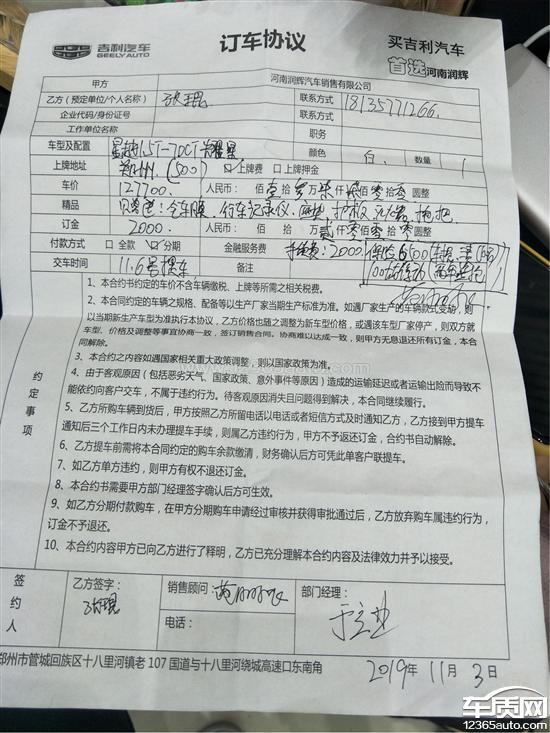 吉利汽车
GEELY AUTO
订车协议
买吉利汽车
首选河南润辉
甲方 河南润辉汽车销售有限公司
乙方(预定单位/个人名称) 联系方式 18135771266
企业代码/身份证号 联系方式
工作单位名称 职务
车型及配置 星越1.5T-7DCT 颜色 白 数量 1
上牌地址 郑州(500) 口上牌费 口上牌押金
车价 127700 人民币: 佰 壹 拾 万 柒 仟 柒 佰 零 拾 零 圆整
精品 汽车膜、行车记录仪、
订金 2000 人民币: 佰 拾 万 贰 仟 零 佰 零 拾 零 圆整
付款方式 口全款 口分期 金融服务费 手续费:2000 保险6500
交车时间 11.6号提车 备注
约定事项
1、本合约约定的车价不含车辆缴税、上牌等所需之相关税费。
2、本合同约定的车辆之规格、配备等以生产厂家当期生产标准为准。如遇厂家生产的车辆款式变场,则
以当期新生产车型为准执行本协议,乙方价格也随之调整为新车型价格,或遇该车型厂家停产,则双方就
车型、价格及调整等事宜协商一致,签订销售合同。协商难以达成一致,则甲方无息退还所有订金,本合
同解除。
3、本合约之内容如遇国家相关重大政策调整,则以国家政策为准。
4、由于客观原因(包括恶劣天气、国家政策、意外事件等原因)造成的运输延迟或者运输出险而导致不
能依约向客户交车,不属于违约行为。待客观原因消失且问题得到解决,本合同继续履行。
5、乙方所购车辆到货后,甲方按照乙方所留电话以电话或者短信方式及时通知乙方,乙方接到甲方提车
通知后三个工作日内未办理提车手续,则属乙方违约行为,甲方不予返还订金,合约书自动解除。
6、乙方提车前需将本合同约定的购车余款缴清,财务确认后方可凭此单客户联提车。
7、如乙方单方违约,则甲方有权不退还订金。
8、本合约书需要甲方部门经理签字确认后方可生效。
9、如乙方分期付款购车,在甲方分期购车申请经过审核并获得审批通过后,乙方放弃购车属违约行为,
订金不予退还。
10、本合约内容甲方已向乙方进行了释明,乙方已充分理解本合约内容及法律效力并予以接受。
签约人
乙方签字: 销售顾问: 部门经理:
电话:
郑州市管城回族区十八里河镇老107国道与十八里河绕城高速口东南角
2019年11月3日
车质网
12365auto.com